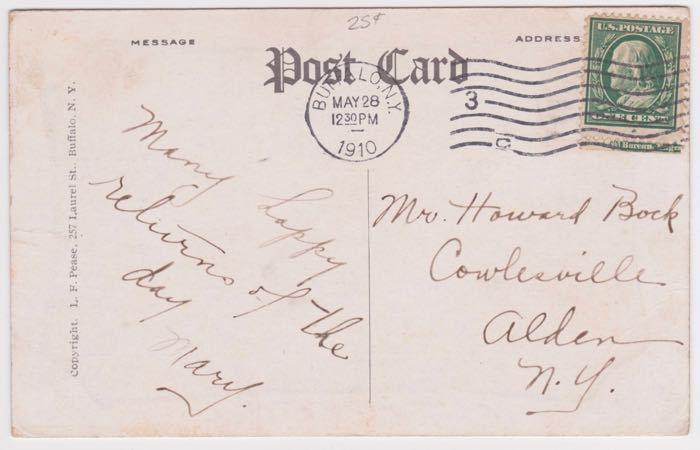 25¢
MESSAGE
Post Card
ADDRESS
U.S. POSTAGE
ONE CENT
BUFFALO, N.Y.
MAY 28
12 30 PM
1910
3
C
Many happy
returns of the
day
Mary.
Mr. Howard Bock
Cowlesville
Alden
N.Y.
Copyright. L. F. Pease, 257 Laurel St., Buffalo, N. Y.